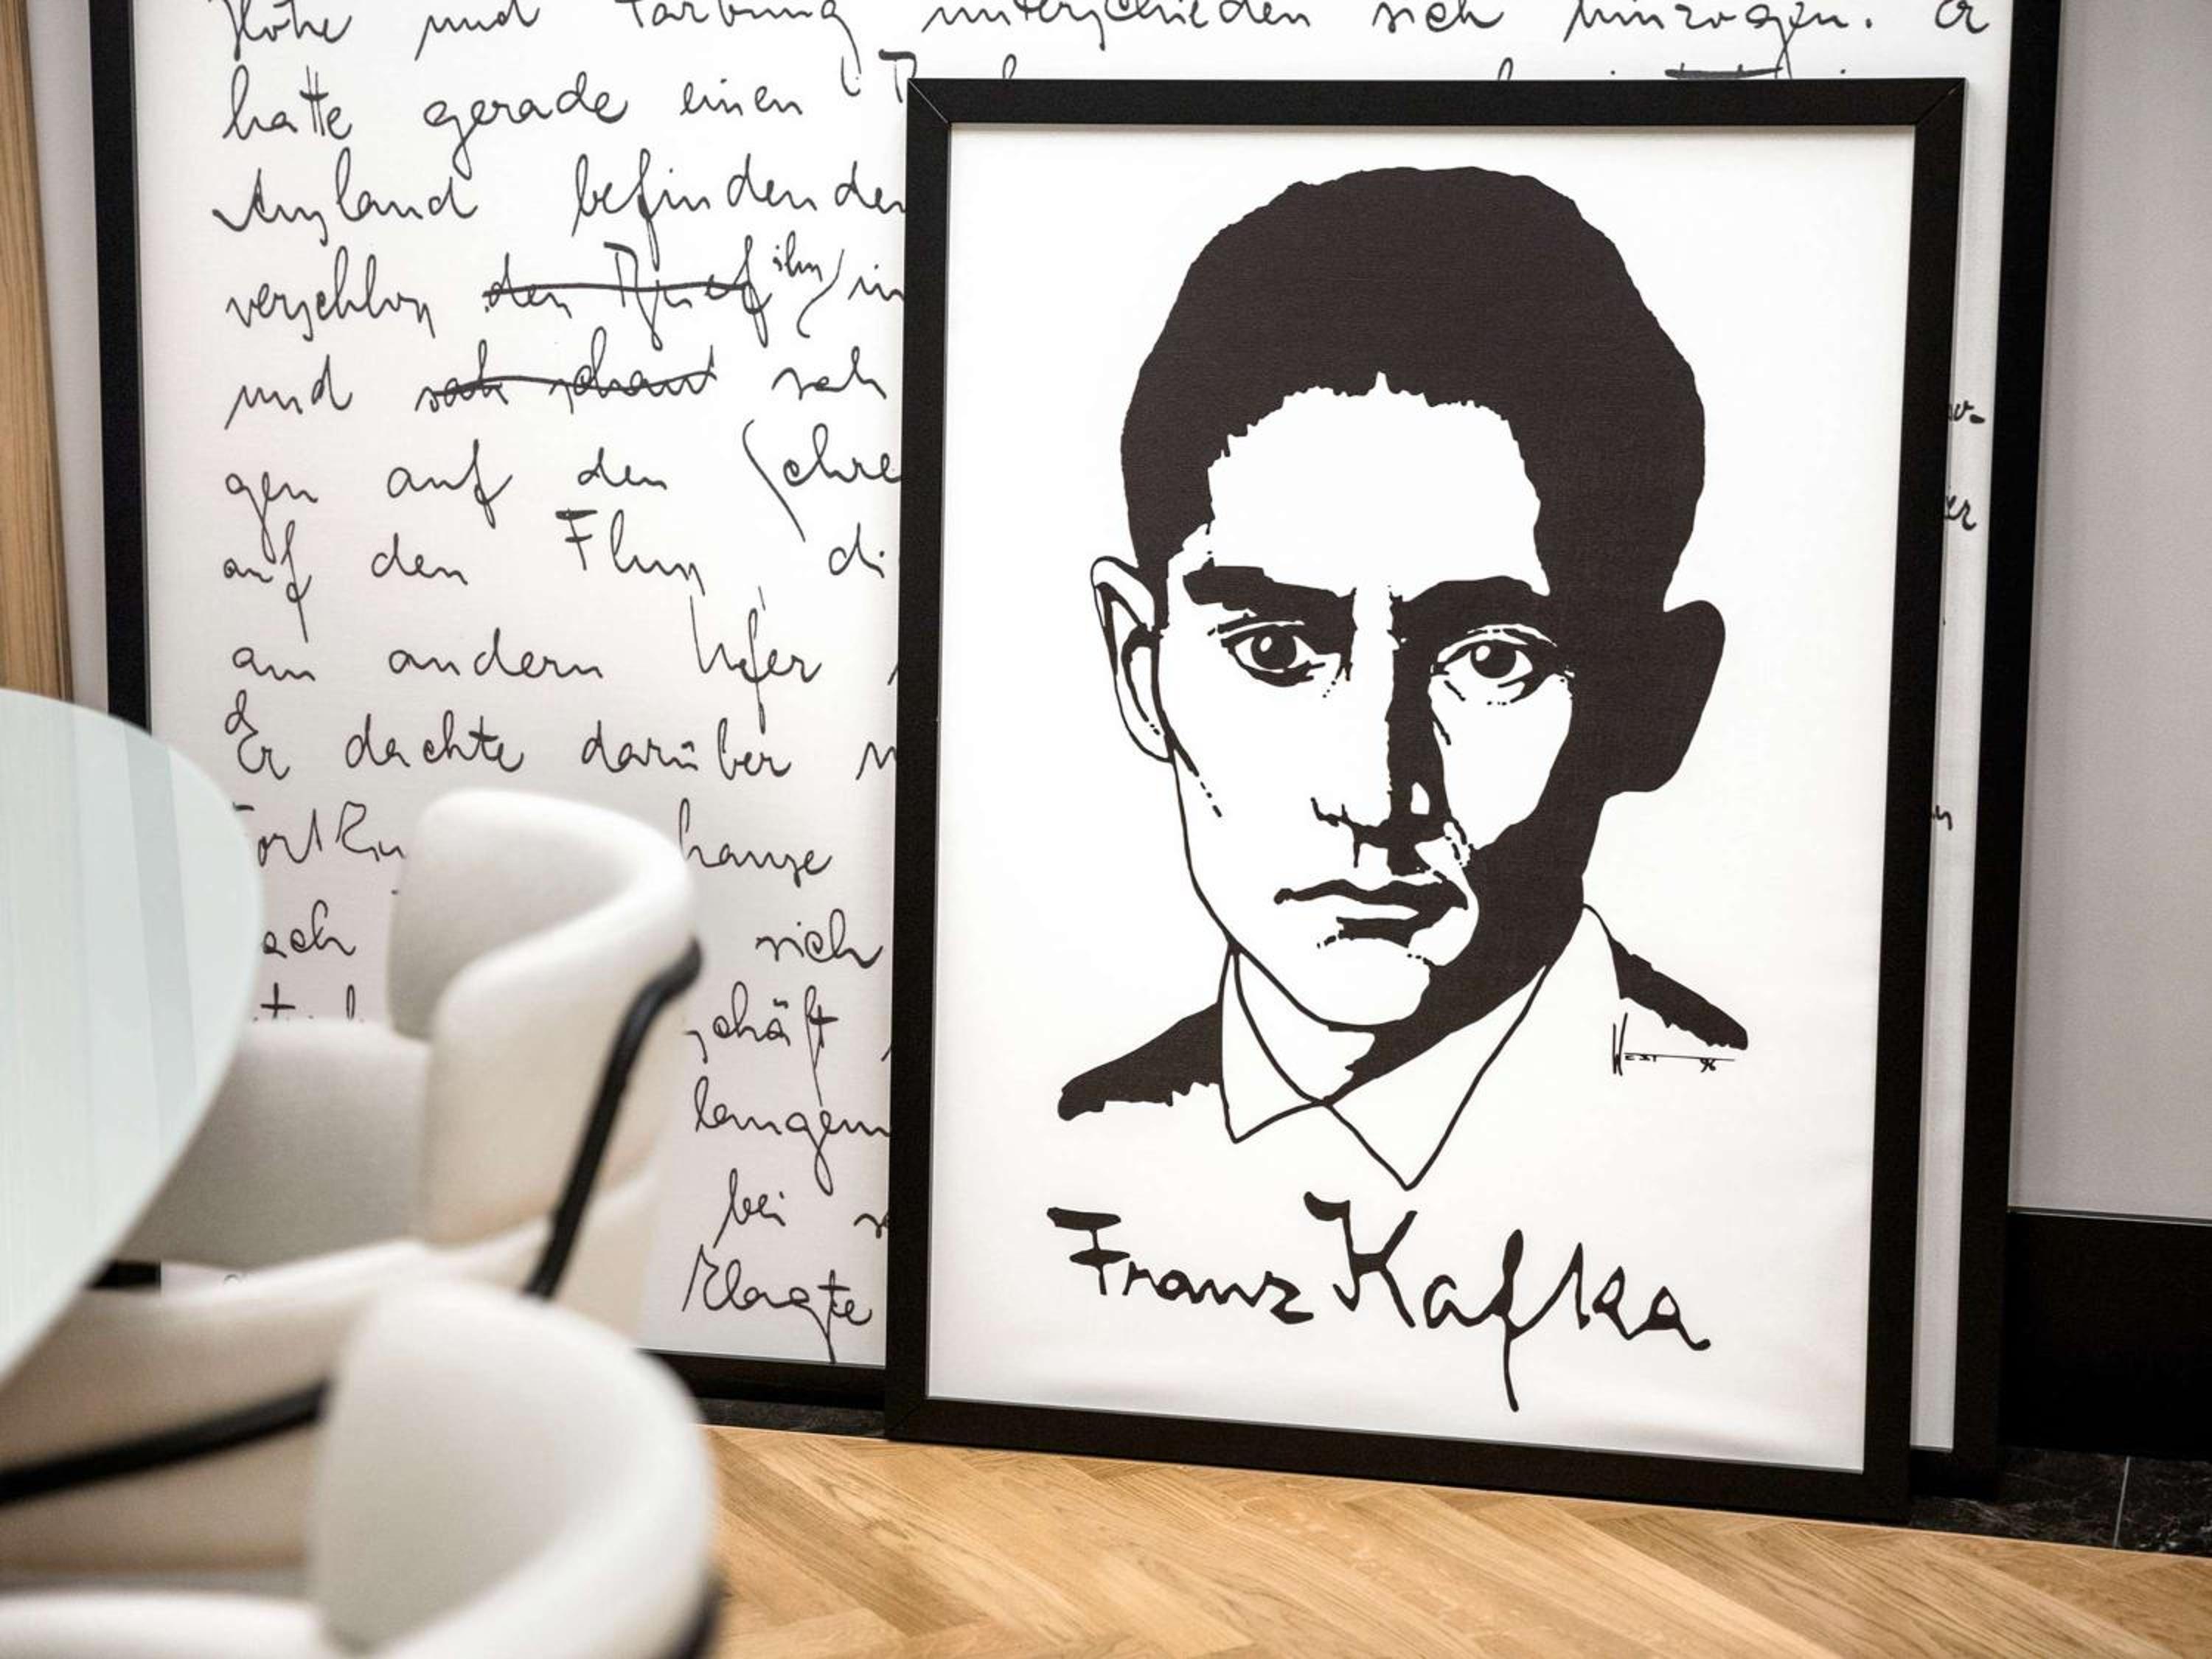 Höhe und Färbung unterschieden sich hinzogen. Er
hatte gerade einen
Ausland befindenden
verschloss den Brief ihn in
und sah dann sah
gen auf den Schre
auf den Fluss, di
am andern Ufer
Er dachte darüber n
hause
ach sich
schäft
langem
bei s
klagte
Franz Kafka
West 96